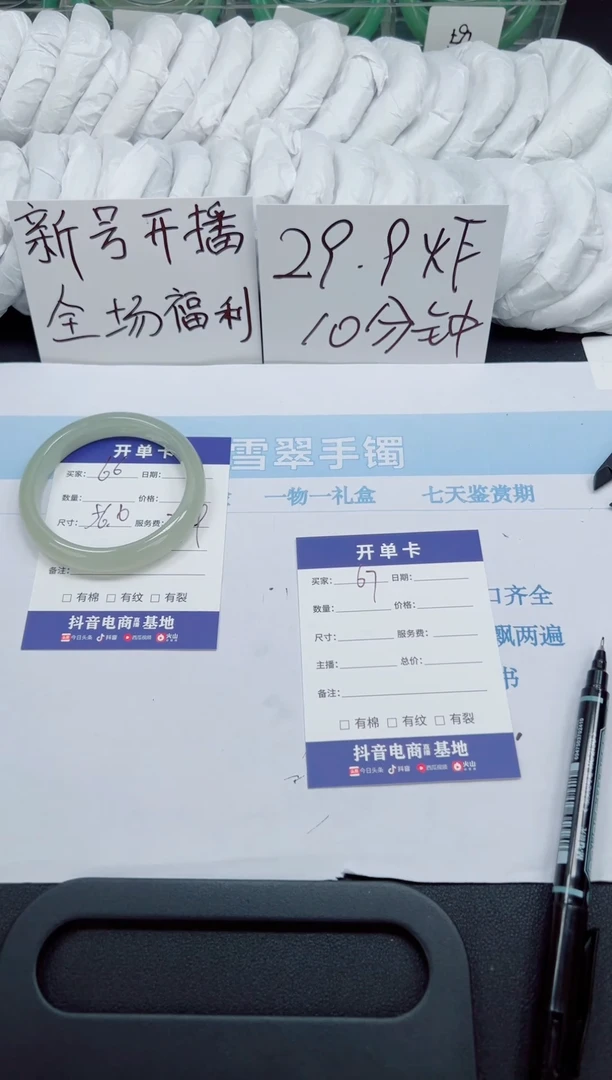 新号开播
全场福利
29.9炸
10分钟
雪翠手镯
一物一礼盒
七天鉴赏期
开单卡
买家:66 日期:
数量: 价格:
尺寸:56.6 服务费:
备注:
有棉 有纹 有裂
抖音电商直播基地
今日头条 抖音 西瓜视频 火山
开单卡
买家:67 日期:
数量: 价格:
尺寸: 服务费:
主播: 总价:
备注:
有棉 有纹 有裂
抖音电商直播基地
今日头条 抖音 西瓜视频 火山
口齐全
飘两遍
书
67